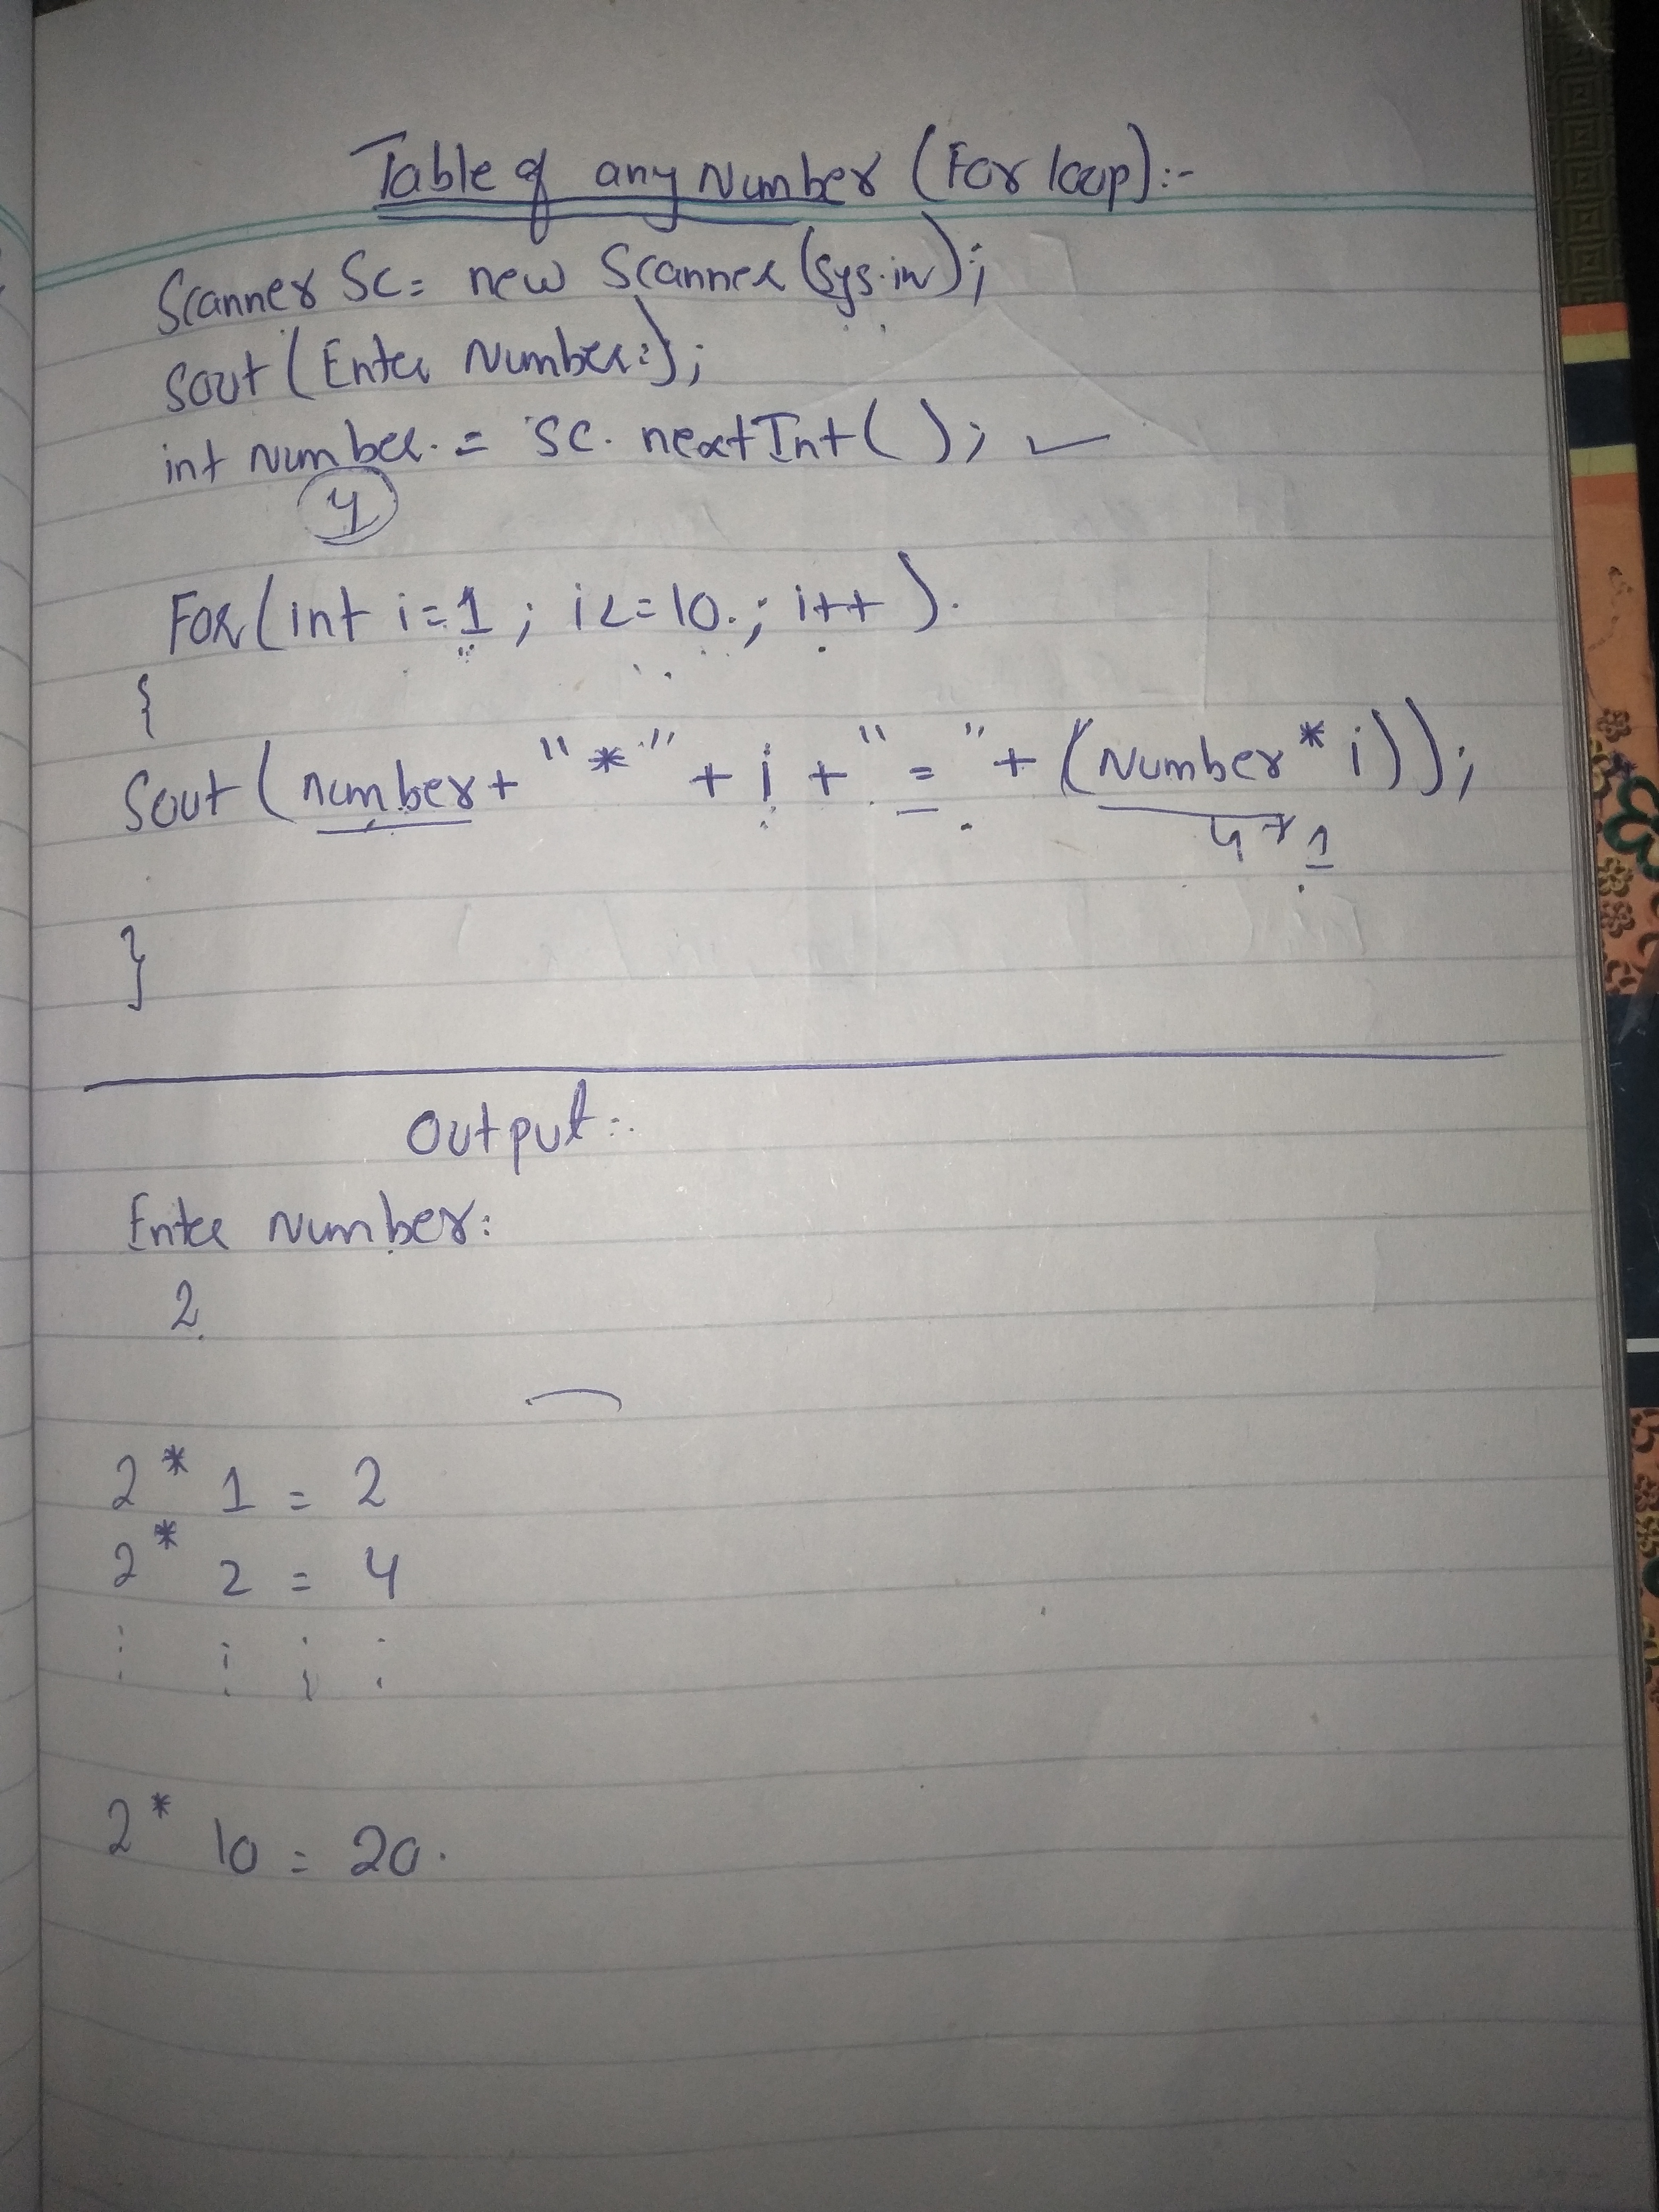 Table of any Number (For loop):-
Scanner Sc = new Scanner (Sys.in);
Sout (Enter Number:);
int number = SC. nextInt ( );
4
FOR (int i = 1 ; i <= 10 ; i++ ).
{
Sout ( number + " * " + i + " = " + (Number * i));
4 * 1
}
Output :-
Enter Number:
2
2 * 1 = 2
2 * 2 = 4
: : : :
2 * 10 = 20.